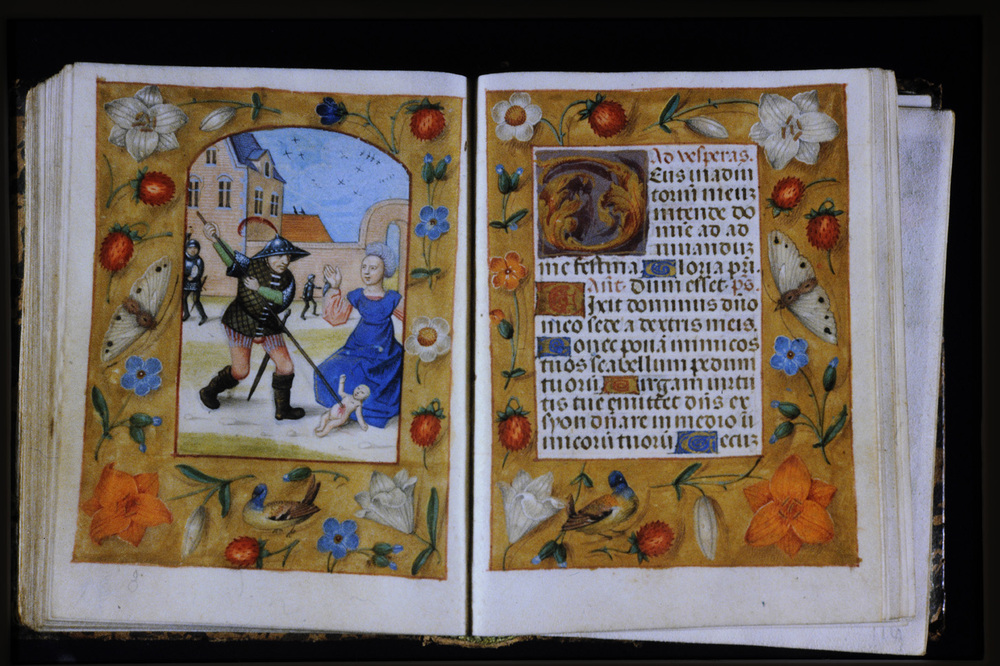 Ad vesperas.
Deus in adiu
toriū meuz
intende do
mie ad ad
iuuanduz
me festina. Gloria pri.
Ant. Dum esset. ps.
Dixit dominus dūo
meo sede a dextris meis.
Donec pon.ā inimicos
tuos scabellum pedum
tuorū. Virgam virtu
tis tue emittet dns ex
syon dnare in medio ū
imicorū tuorū. Tecuz